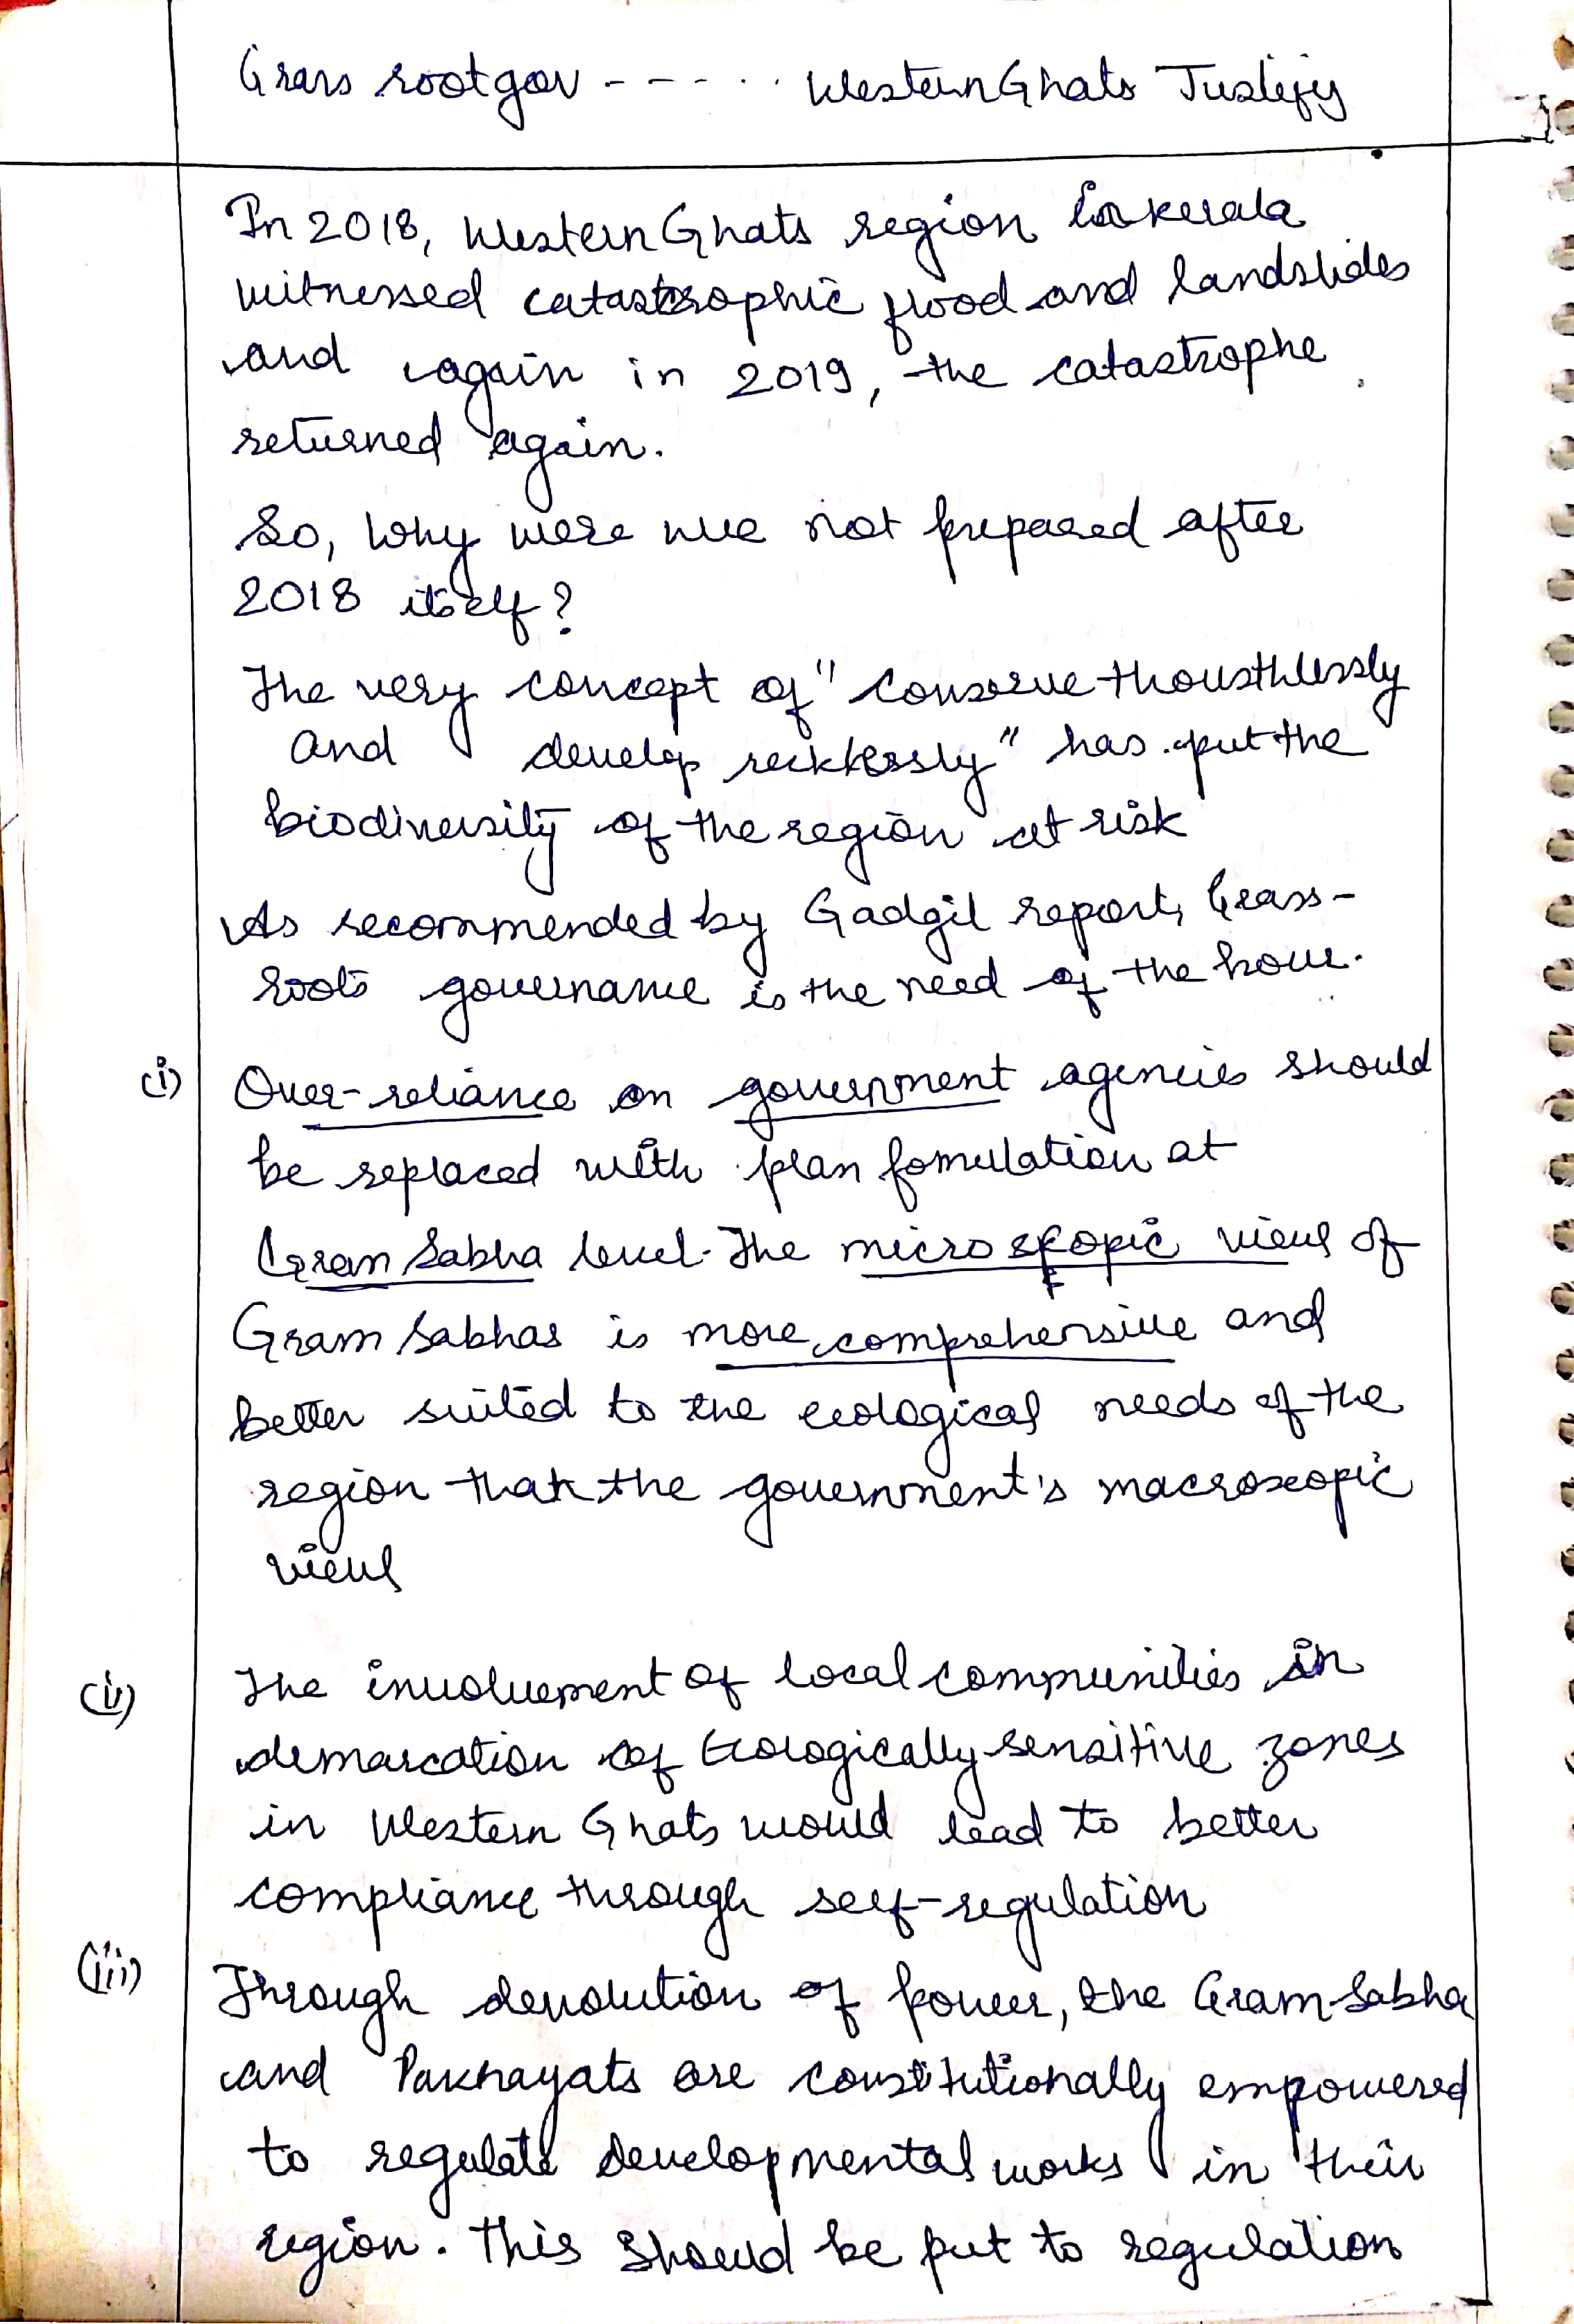 Grass root gov - - - - . . . Western Ghats Justify
In 2018, Western Ghats region in kerala
witnessed catastrophic flood and landslides
and again in 2019, the catastrophe
returned again.
So, why were we not prepared after
2018 itself?
The very concept of "conserve thousthlessly
and develop recklessly" has put the
biodiversity of the region at risk
As recommended by Gadgil report, Grass-
roots governance is the need of the hour.
(i) Over-reliance on government agencies should
be replaced with plan fomulation at
Gram Sabha level. The microscopic view of
Gram Sabhas is more comprehensive and
better suited to the ecological needs of the
region than the government's macroscopic
view
(ii) The involvement of local communities in
demarcation of Ecologically sensitive zones
in Western Ghats would lead to better
compliance through self-regulation
(iii) Through devolution of power, the Gram Sabha
and Panchayats are constitutionally empowered
to regulate developmental works in their
region. This should be put to regulation